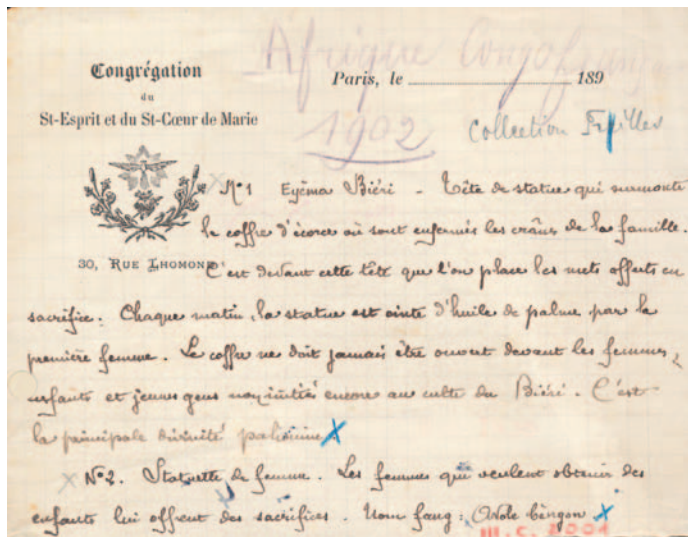 Afrique Congo français
Congrégation
du
St-Esprit et du St-Cœur de Marie
Paris, le 189
1902
Collection Trilles
30, RUE LHOMOND
N°1 Eyéma Biéri - Tête de statue qui surmonte
le coffre d'écorce où sont enfermés les crânes de la famille.
C'est devant cette tête que l'on place les mets offerts en
sacrifice. Chaque matin, la statue est ointe d'huile de palme par la
première femme. Le coffre ne doit jamais être ouvert devant les femmes,
enfants et jeunes gens non initiés encore au culte du Biéri. C'est
la principale divinité pahouine
N°2. Statuette de femme. Les femmes qui veulent obtenir des
enfants lui offrent des sacrifices. Nom fang: